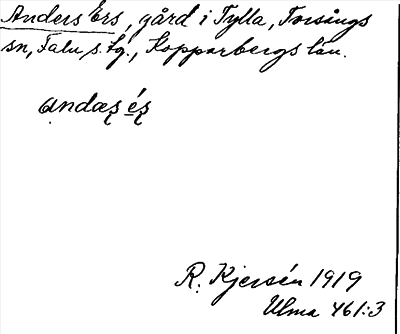 Anders Ers, gård i Tylla, Torsångs
sn, Falu s. tg., Kopparbergs län.
andas és
R. Kjersén 1919
Ulma 461:3